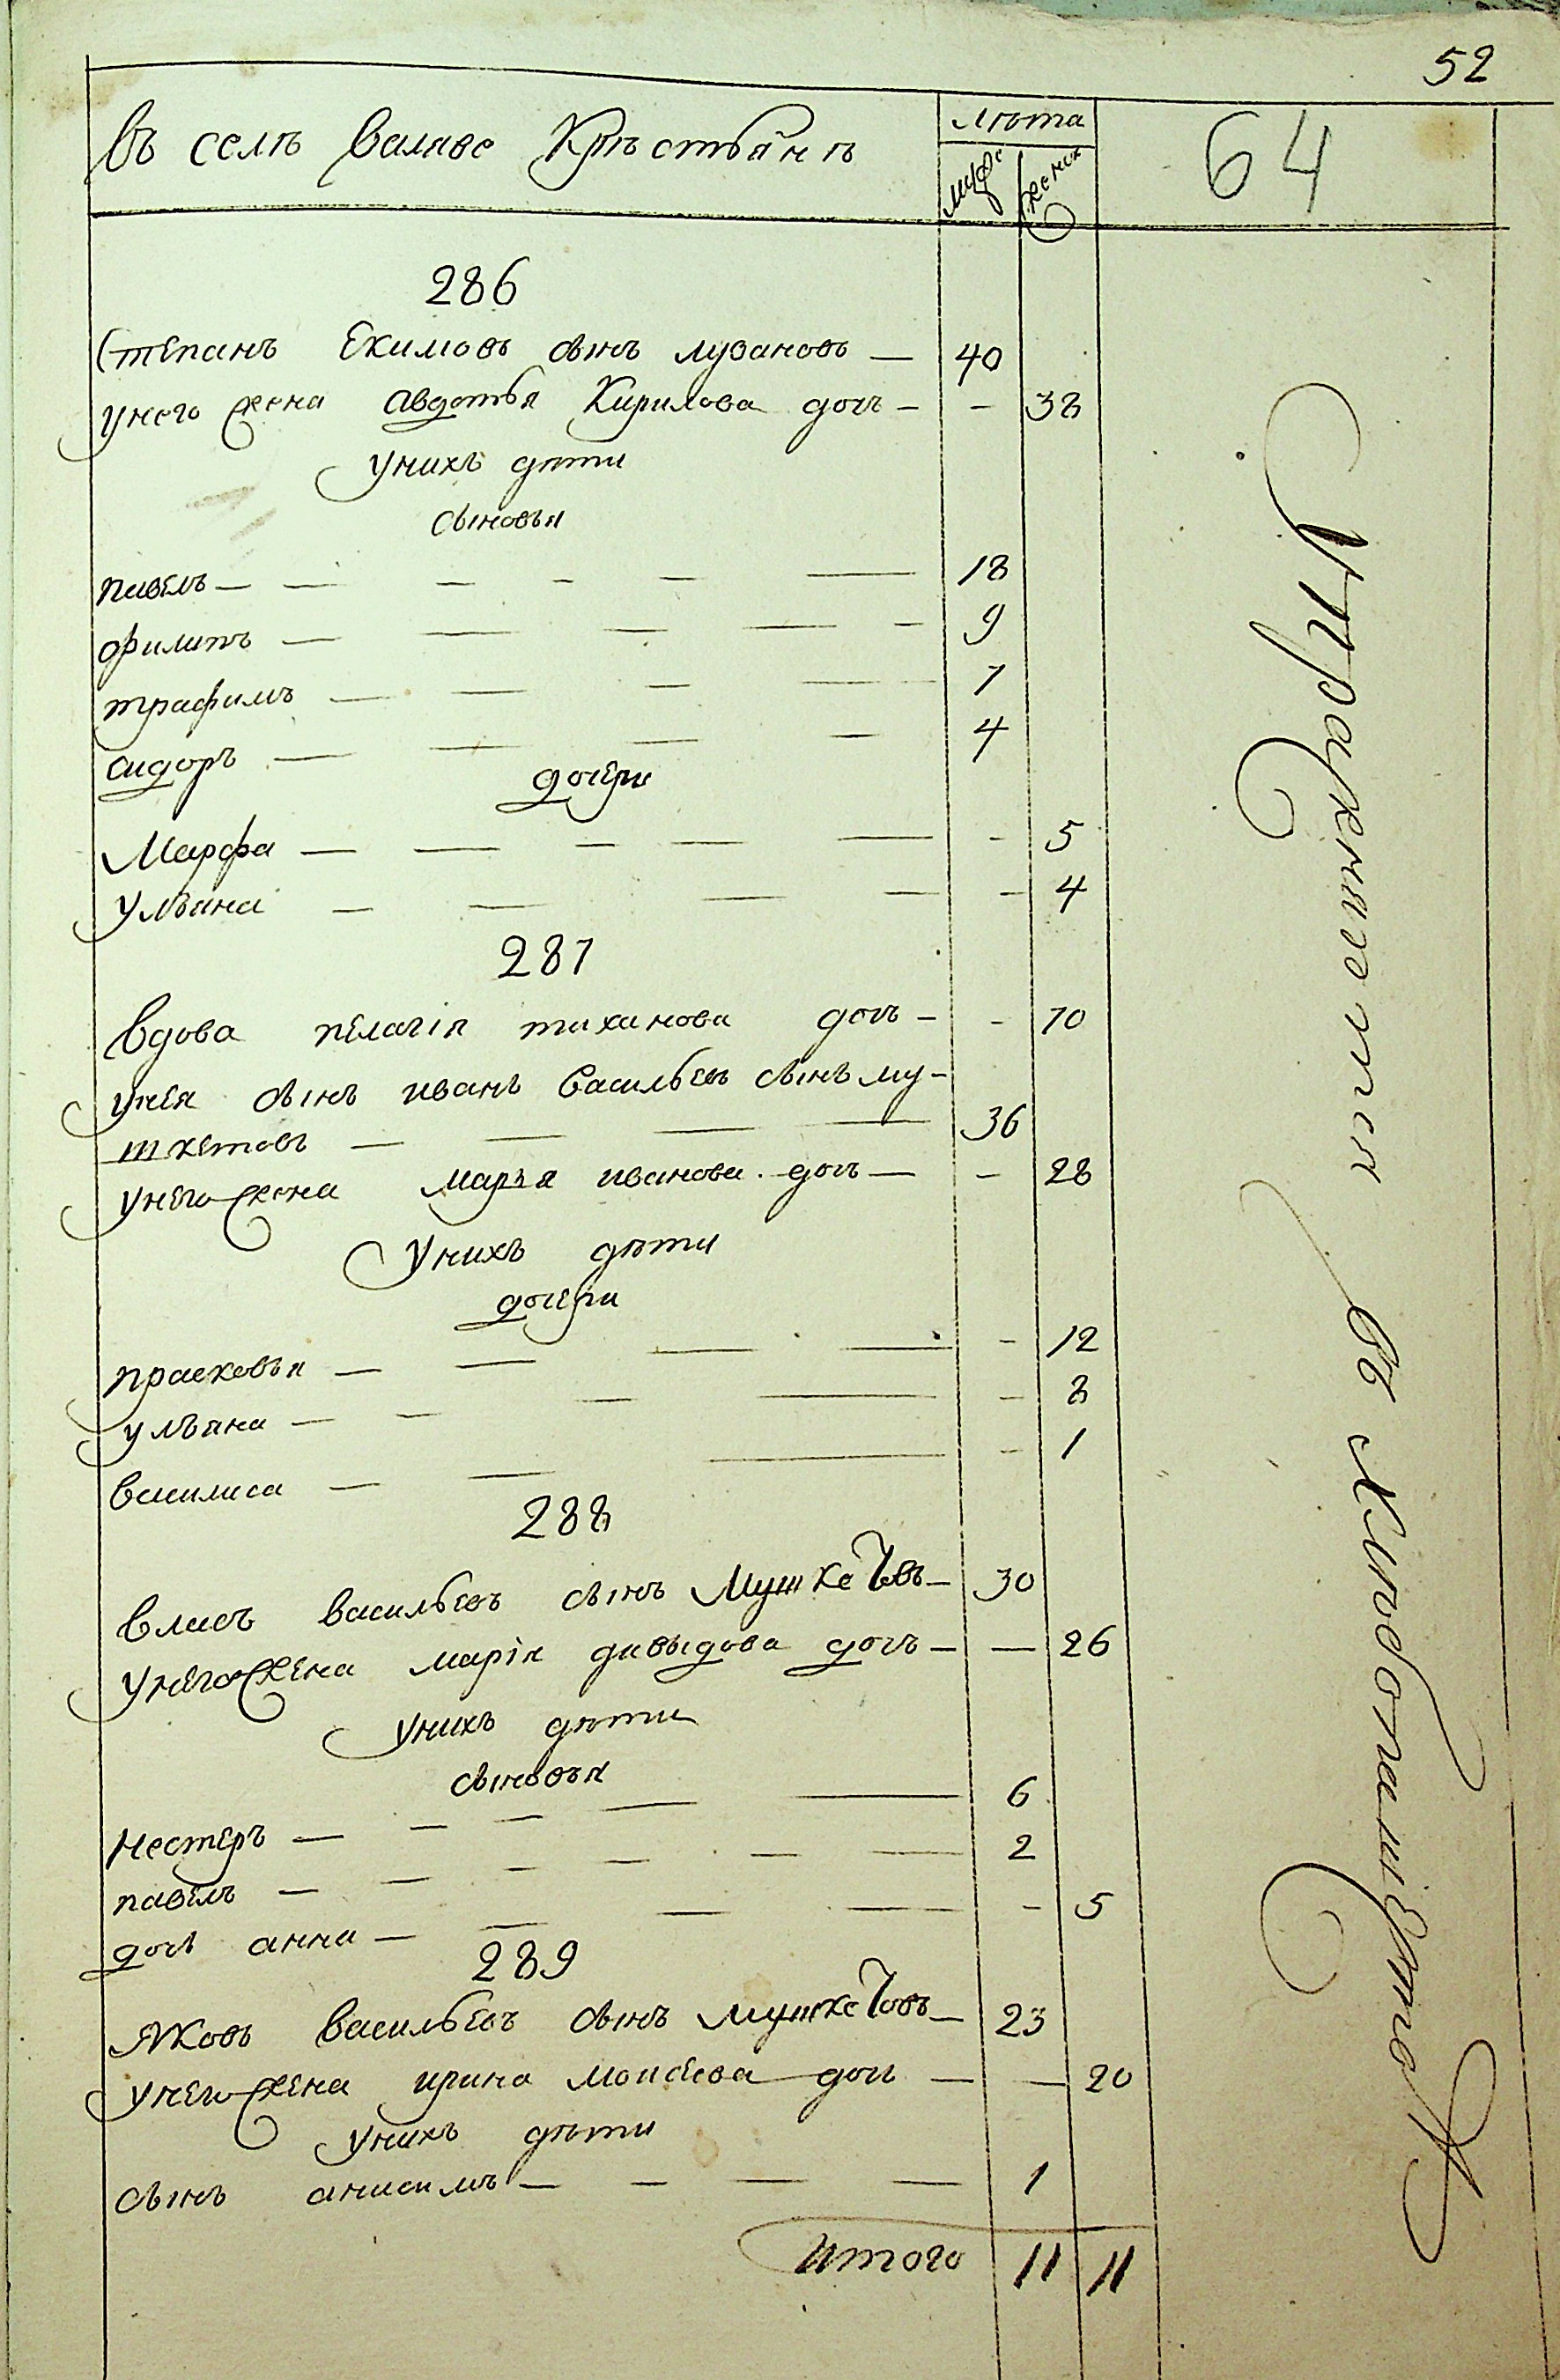 52
въ селѣ валаве Крѣстьянъ
лѣта
64
муже
женск
286
Степанъ Екимовъ сынъ лузановъ — 40
унего жена авдотья Кирилова дочь — - 38
унихъ дѣти
сыновья
павелъ — 18
филипъ — 9
трафимъ — 7
сидоръ — 4
дочери
Марфа — - 5
ульяна — - 4
287
вдова пелагія тиханова дочь — - 70
унея сынъ иванъ васильевъ сынъ му-
шкетовъ — 36
унего жена марья иванова дочь — - 28
унихъ дѣти
дочери
прасковья — - 12
ульяна — - 8
василиса — - 1
288
власъ васильевъ сынъ Мушкетовъ — 30
унего жена марія давыдова дочь — — 26
унихъ дѣти
сыновья
Нестеръ — 6
павелъ — 2
дочь анна — - 5
289
Яковъ васильевъ сынъ мушкетовъ — 23
унего жена ирина моисеева дочь — — 20
унихъ дѣти
сынъ анисимъ — 1
итого 11 11
Упражнентся въ хлебопашестве